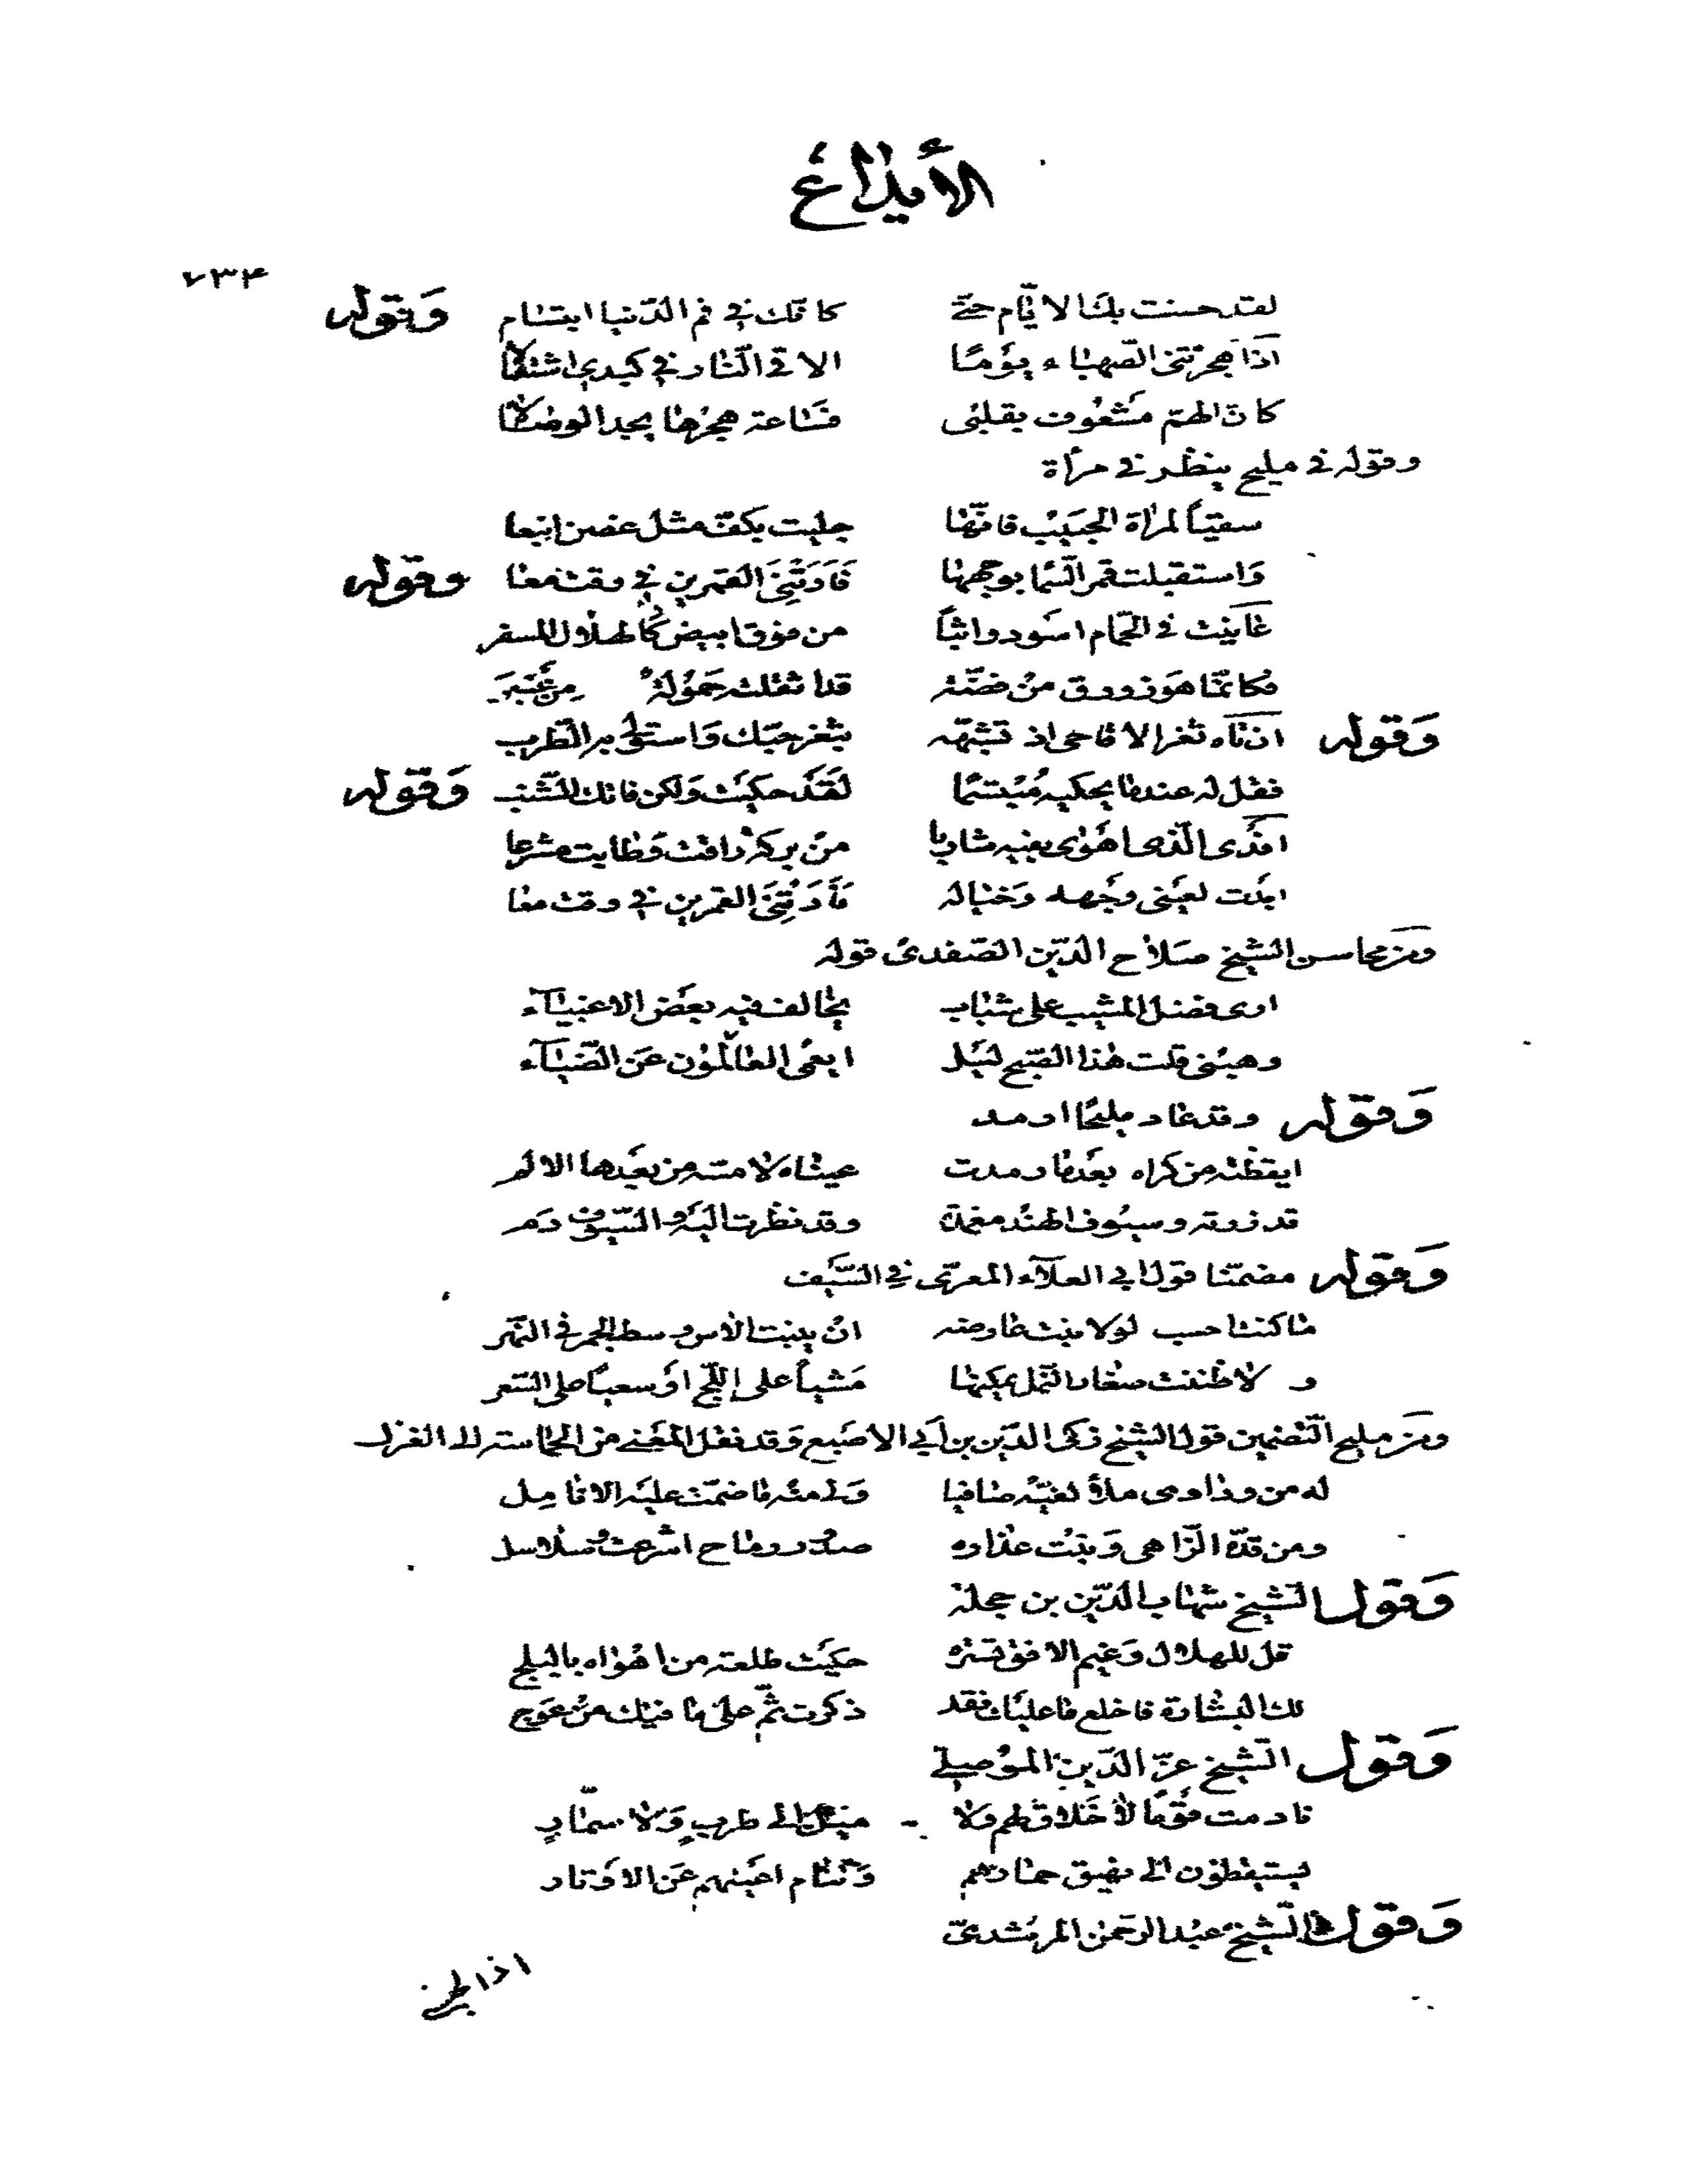 الأيداع
٧٣٤
لقد حسنت بك الايام حتى كانك في فم الدنيا ابتسام وقوله
اذا هجرتني الصهباء يوما الاقي النار في كبدي اشتعالا
كان الهم مشغوف بقلبي فساعة هجرها يجد الوصالا
وقوله في مليح ينظر في مرأة
سقيا لمراة الحبيب فانها جليت بكف مثل غصن اينعا
واستقبلت قمر السما بوجهها فارتني القمرين في وقت معا وقوله
عاينت في الحمام اسود واثبا من فوق ابيض كالهلال المسفر
فكانما هو زورق من فضة قد اثقلته حمولة من عنبر
وقوله ان تاه ثغر الاقاحى اذ تشبهه بثغر حبك واستولى به الطرب
فقل له عندما يحكيه مبتسما لقد حكيت ولكن فاتك الشنب وقوله
افدى الذى اهوى بفيه شاربا من بركة راقت وطابت مشرعا
ابدت لعينى وجهه وخياله فأرتني القمرين في وقت معا
ومن محاسن الشيخ صلاح الدين الصفدى قوله
ارى فضل المشيب على شباب يخالف فيه بعض الاغبيآء
وهبنى قلت هذا الصبح ليل ايعمى العالمون عن الضيآء
وقوله وقد عاد مليحا ارمد
ايقظته من كراه بعدما رمدت عيناه لا مسه من بعدها الالم
قد زرته وسيوف الهند مغمدة وقد نظرت اليه والسيوف دم
وقوله مضمنا قول ابي العلآء المعرى في السيف
ما كنت احسب لولا نبت عارضه ان ينبت الاس وسط الجمر في النهر
ولا ظننت صغار النمل يمكنها مشيا على اللج او سعيا على السعر
ومن مليح التضمين قول الشيخ زكى الدين بن أبي الاصبع وقد نقل المعنى من الحماسة الى الغزل
له من ودادى ملأ كفيه صافيا ولى منه ما ضمت عليه الانامل
ومن قده الزاهى ونبت عذاره صدور رماح اشرعت وسلاسل
وقول الشيخ شهاب الدين بن حجلة
قل للهلال وغيم الافق تستره حكيت طلعة من اهواه بالبلج
لك البشارة فاخلع ما عليك فقد ذكرت ثم على ما فيك من عوج
وقول الشيخ عز الدين الموصلي
نادمت قوما لا خلاق لهم ولا ميل الى طرب ولا سمار
يستيقظون الى نهيق حمارهم وتنام اعينهم عن الاوتار
وقول الشيخ عبد الرحمن المرشدى
اذا لحن